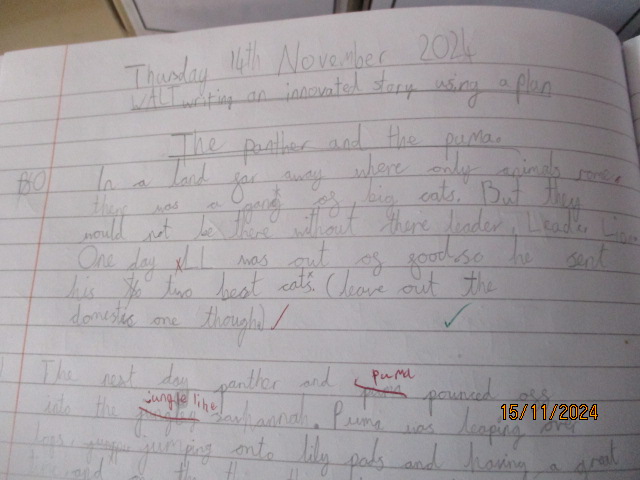 Thursday 14th November 2024
WALT writing an innovated story using a plan
The panther and the puma.
In a land far away where only animals rome,
there was a gang of big cats. But they
would not be there without there leader, Leader Lion
One day LL was out of food so he sent
his two best cats. (leave out the
domestic one though)
The next day panther and puma pounced off
into the jungle like savhannah. Puma was leaping over
logs, jumping onto lily pads and having a great
15/11/2024